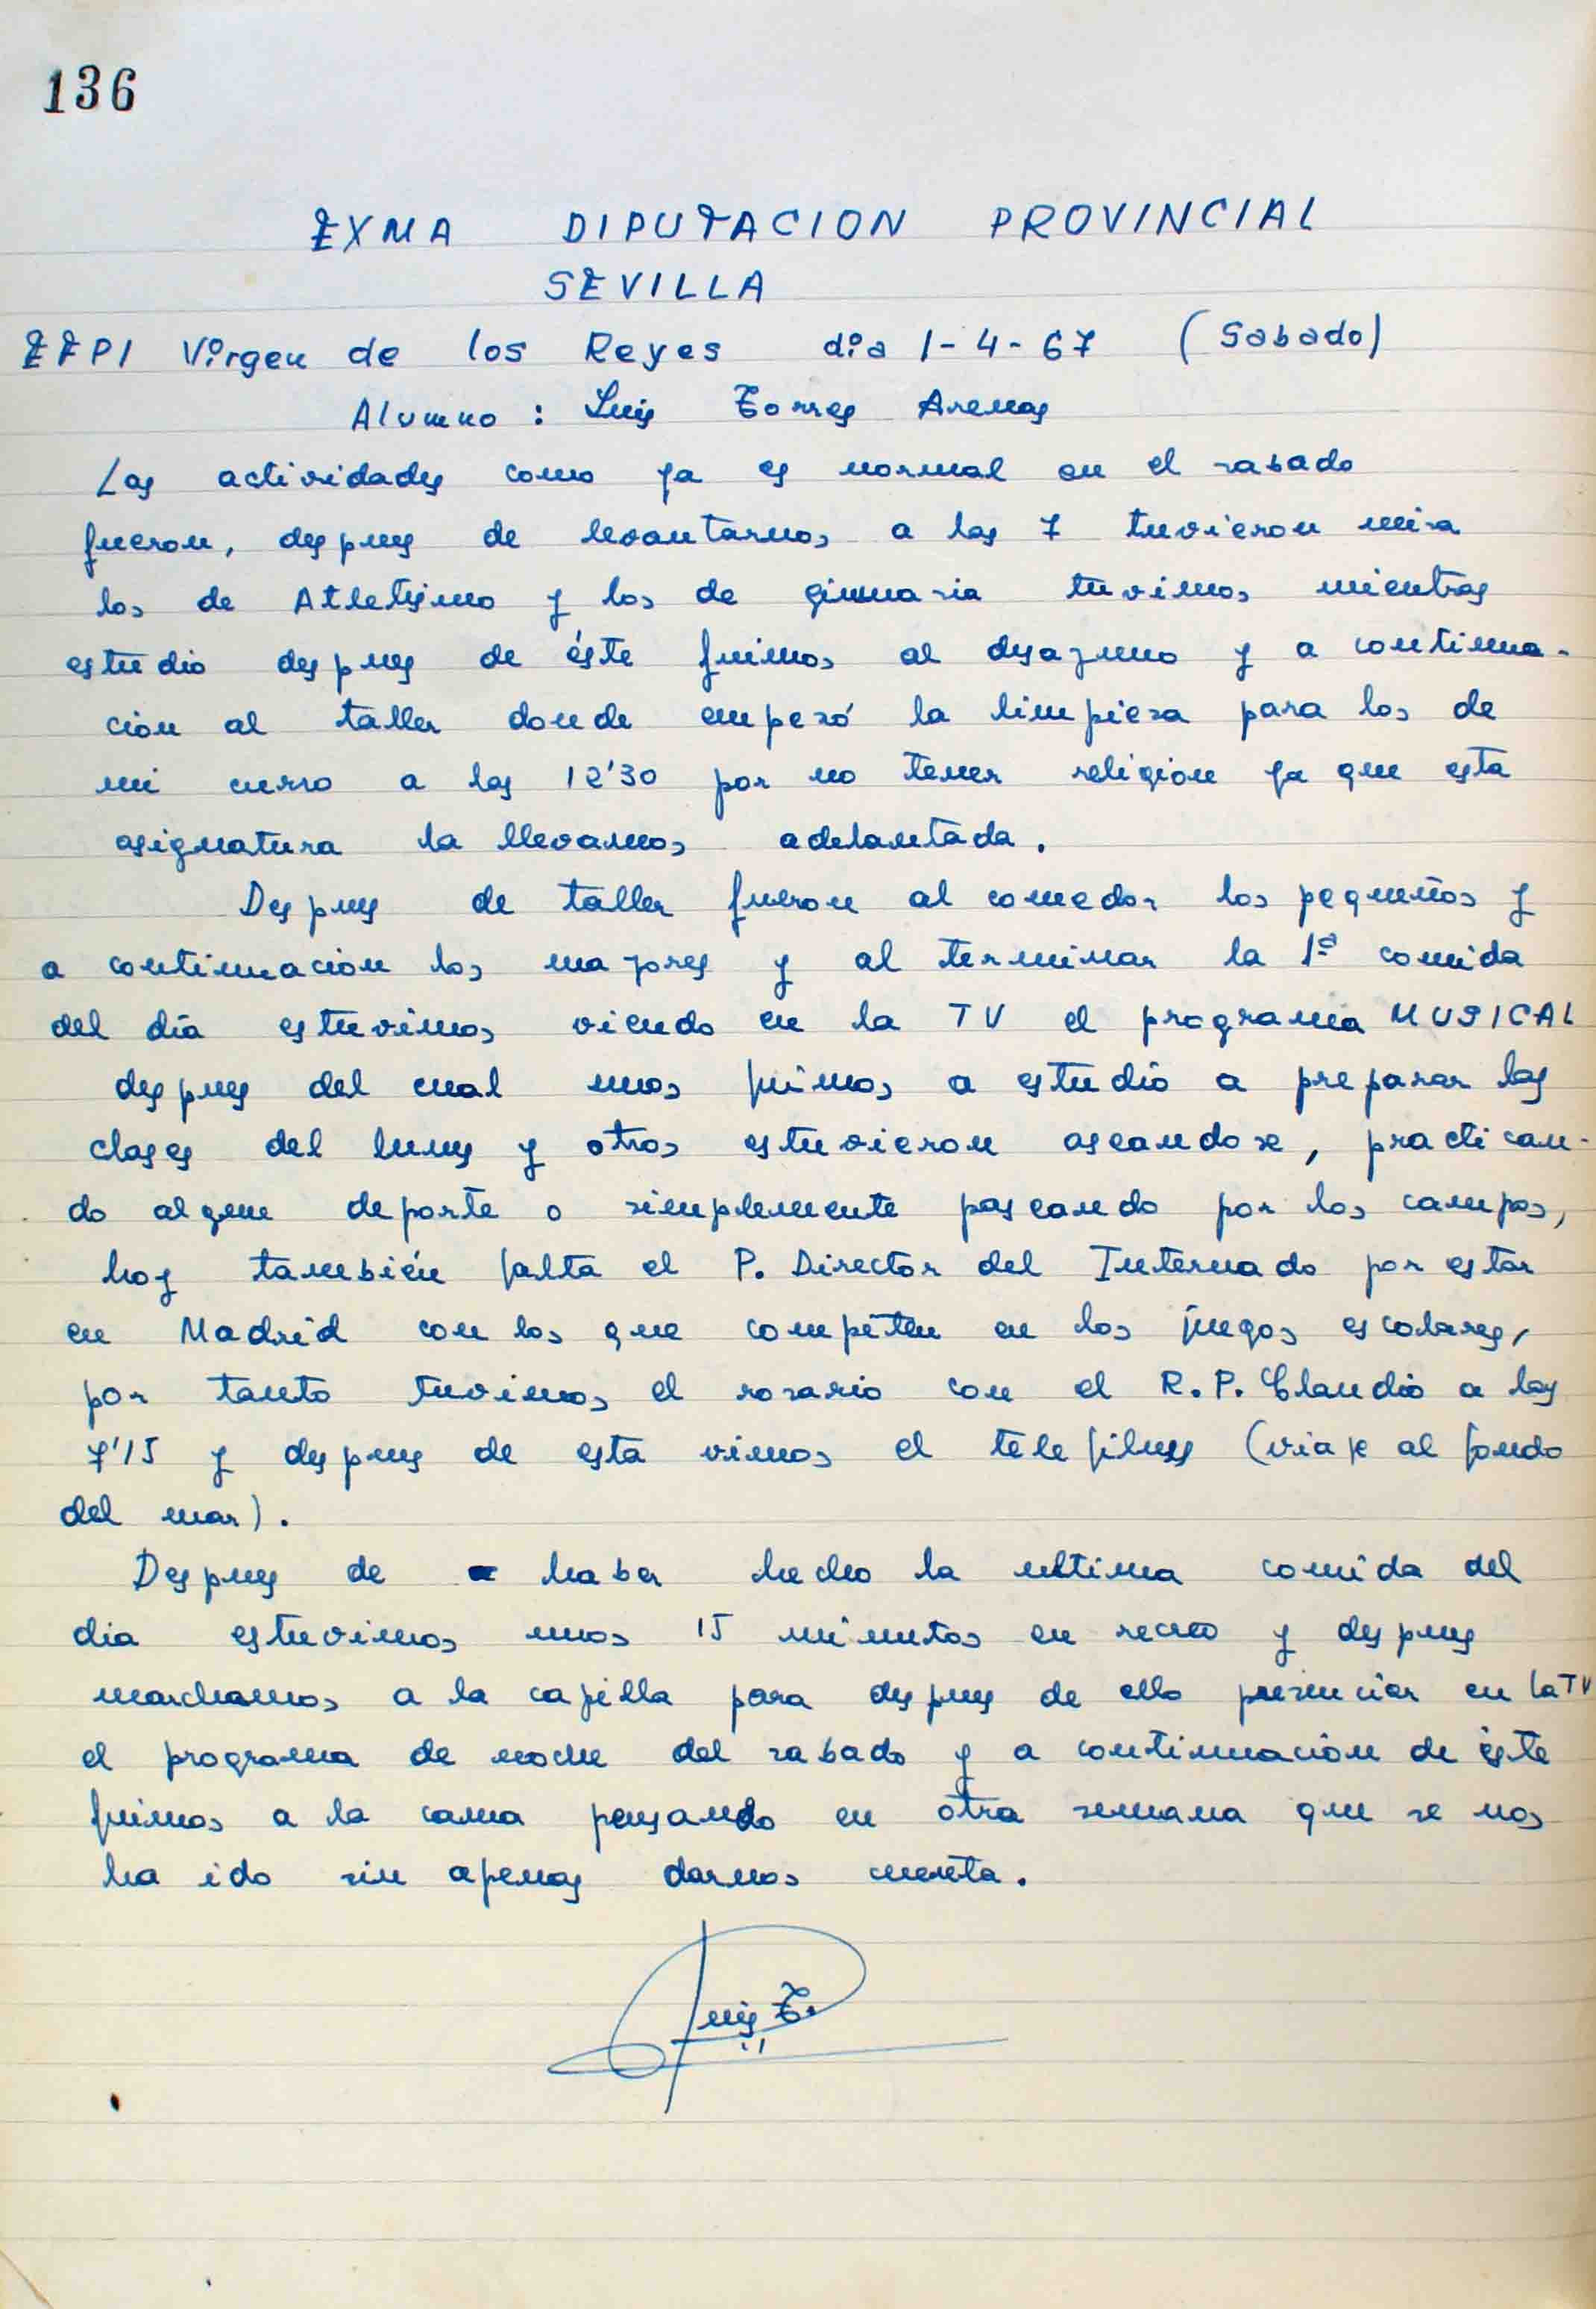 136
EXMA DIPUTACION PROVINCIAL
SEVILLA
EFPI Virgen de los Reyes dia 1-4-67 (Sabado)
Alumno : Luis Torres Arenas
Las actividades como ya es normal en el sabado
fueron, despues de levantarnos a las 7 tuvieron misa
los de Atletismo y los de gimnasia tuvimos mientras
estudio despues de éste fuimos al desayuno y a continua-
ción al taller donde empezó la limpieza para los de
mi curso a las 12'30 por no tener religion ya que esta
asignatura la llevamos adelantada.
Despues de taller fueron al comedor los pequeños y
a continuacion los mayores y al terminar la 1ª comida
del día estuvimos viendo en la TV el programa MUSICAL
despues del cual unos fuimos a estudio a preparar las
clases del lunes y otros estuvieron aseandose, practican-
do algun deporte o simplemente paseando por los campos,
hoy también falta el P. Director del Internado por estar
en Madrid con los que compiten en los juegos escolares,
por tanto tuvimos el rosario con el R.P. Claudio a las
7'15 y despues de esta vimos el telefilms (viaje al fondo
del mar).
Despues de haber hecho la ultima comida del
dia estuvimos unos 15 minutos en recreo y despues
marchamos a la capilla para despues de ello presenciar en la TV
el programa de noche del sabado y a continuación de éste
fuimos a la cama pensando en otra semana que se nos
ha ido sin apenas darnos cuenta.
Luis T.